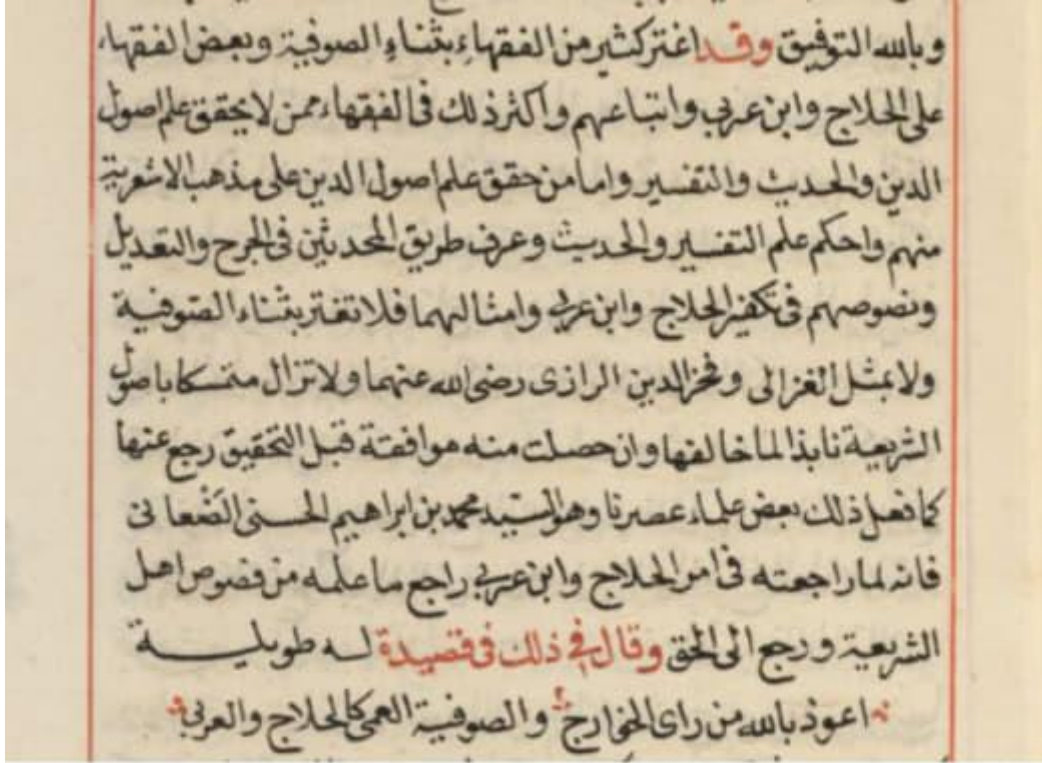 وبالله التوفيق وقد اغتر كثير من الفقهاء بثناء الصوفية وبعض الفقهاء
على الحلاج وابن عربي واتباعهم واكثر ذلك في الفقهاء ممن لا يحقق علم اصول
الدين والحديث والتفسير واما من حقق علم اصول الدين على مذهب الاشعرية
منهم واحكم علم التفسير والحديث وعرف طريق المحدثين في الجرح والتعديل
ونصوصهم في تكفير الحلاج وابن عربي وامثالهما فلا تغتر بثناء الصوفية
ولا بمثل الغزالى وفخر الدين الرازى رضى الله عنهما ولا تزال متمسكا باصول
الشريعة نابذا لما خالفها وان حصلت منه موافقة قبل التحقيق رجع عنها
كما فعل ذلك بعض علماء عصرنا وهو السيد محمد بن ابراهيم الحسنى الصنعانى
فانه لما راجعته في امر الحلاج وابن عربي راجع ما علمه من نصوص اهل
الشريعة ورجع الى الحق وقال في ذلك في قصيدة له طويلة
اعوذ بالله من راى الخوارج والصوفية العمى كالحلاج والعربي